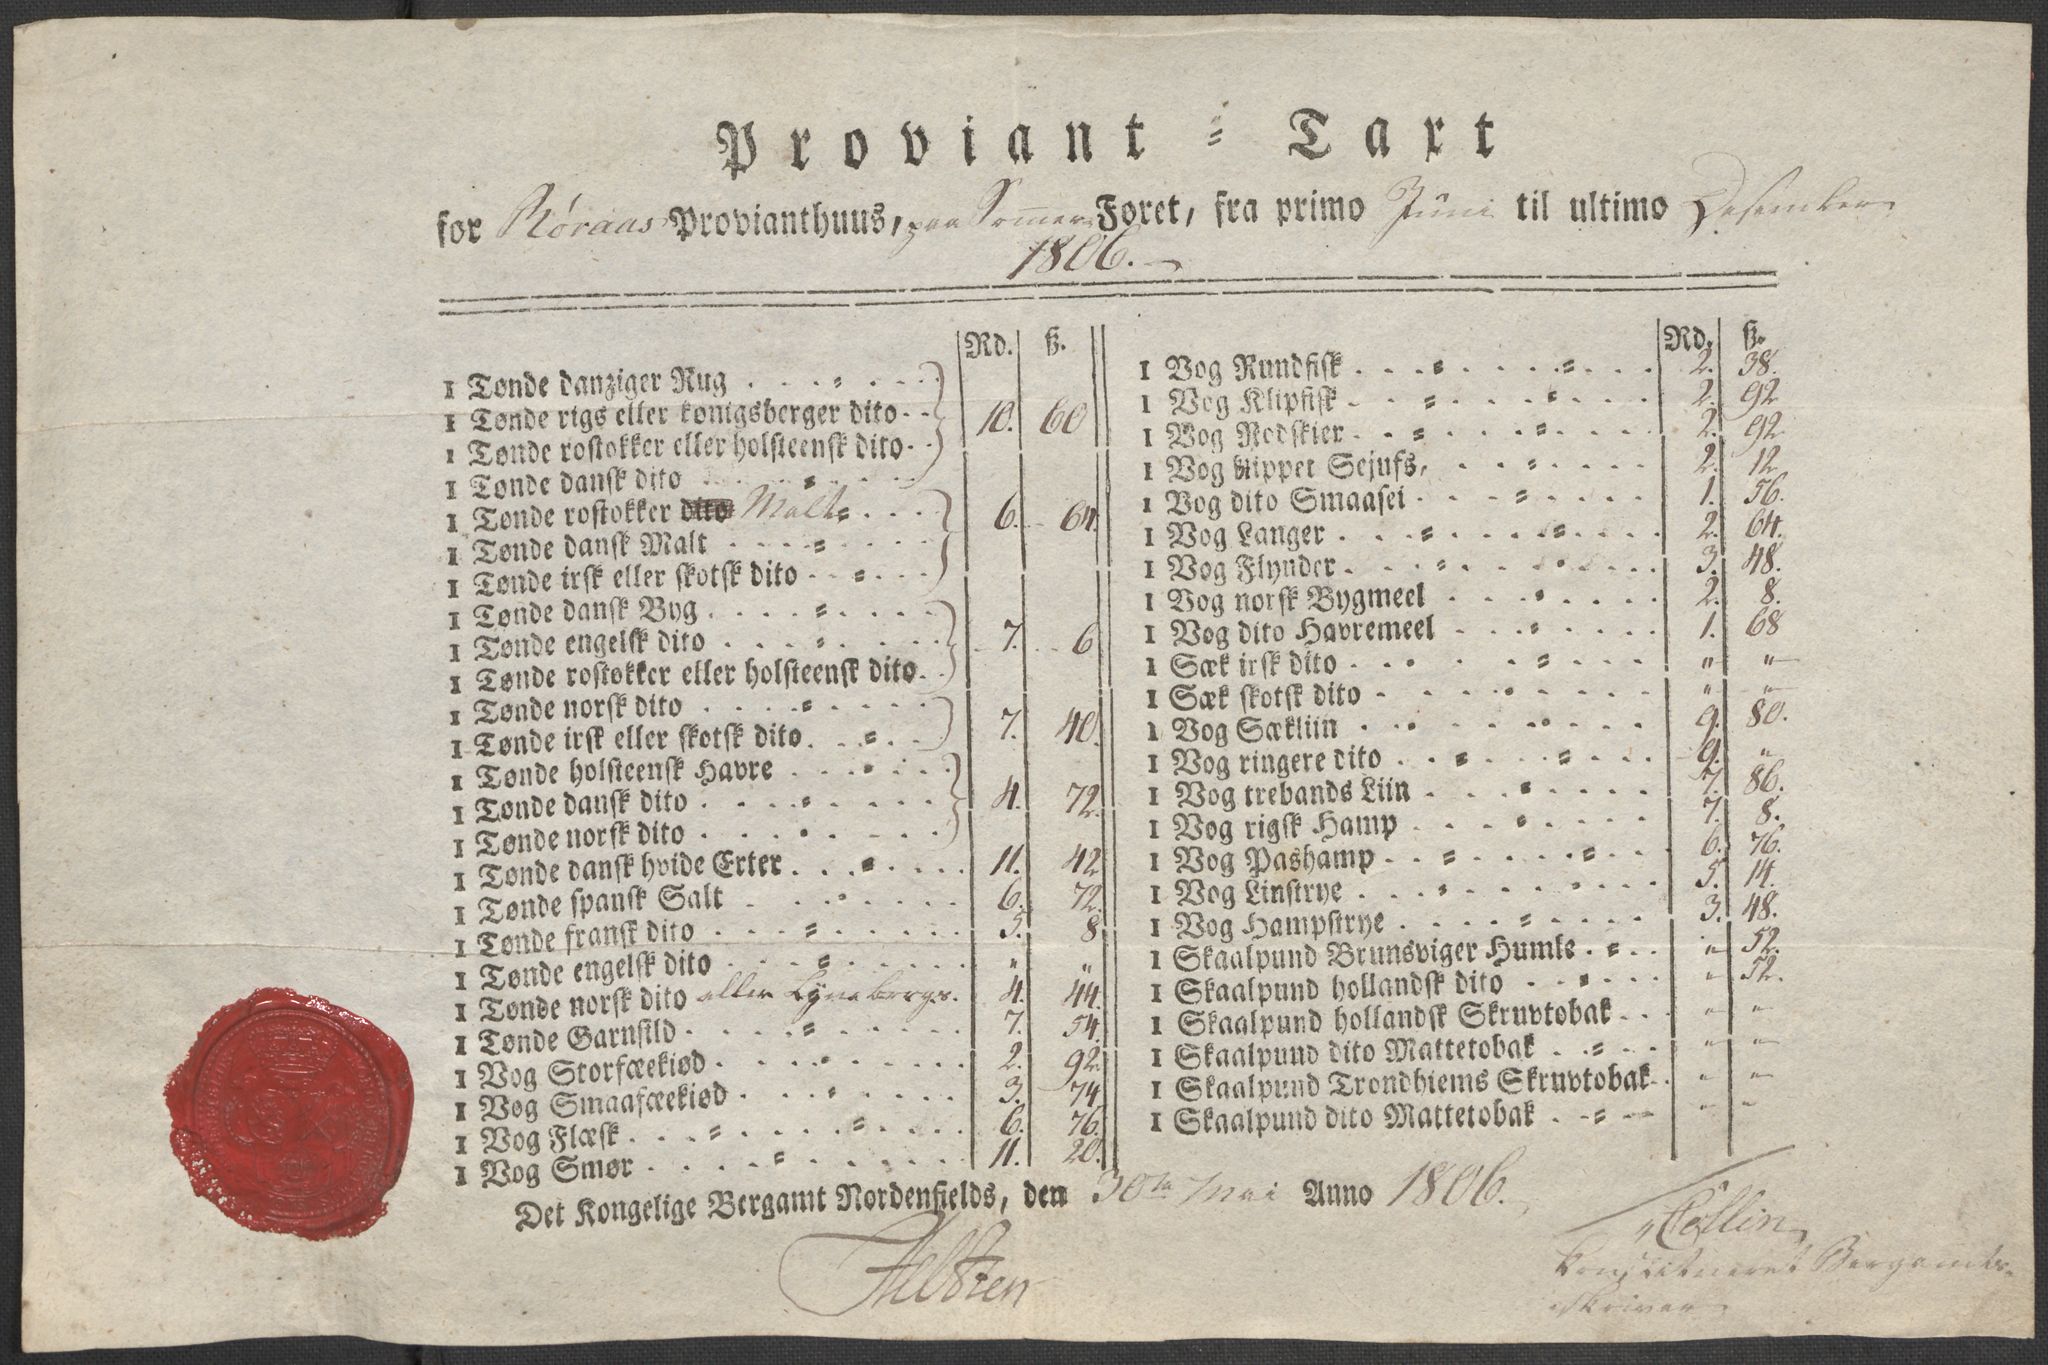 Proviant-Taxt
for Røraas Provianthuus, paa Sommer Foret, fra primo Juni til ultimo Desember
1806.
Rd. ß.
1 Tønde danziger Rug
1 Tønde rigs eller kønigsberger dito
1 Tønde rostokker eller holsteensk dito 10. 60
1 Tønde dansk dito
1 Tønde rostokker dito Malt
1 Tønde dansk Malt 6. 64.
1 Tønde irsk eller skotsk dito
1 Tønde dansk Byg
1 Tønde engelsk dito 7. 6
1 Tønde rostokker eller holsteensk dito
1 Tønde norsk dito
1 Tønde irsk eller skotsk dito 7. 40.
1 Tønde holsteensk Havre
1 Tønde dansk dito 4. 72.
1 Tønde norsk dito
1 Tønde dansk hvide Erter 11. 42
1 Tønde spansk Salt 6. 72.
1 Tønde fransk dito 5. 8
1 Tønde engelsk dito " "
1 Tønde norsk dito eller Lynebergs. 4. 44.
1 Tønde Garnsild 7. 54.
1 Vog Storfæekiød 2. 92.
1 Vog Smaafæekiød 3. 74
1 Vog Flæsk 6. 76.
1 Vog Smør 11. 20.
Rd. ß.
1 Vog Rundfisk 2. 38.
1 Vog Klipfisk 2. 92
1 Vog Rodskier 2. 92
1 Vog klippet Sejufs, 2. 12
1 Vog dito Smaasei 1. 56.
1 Vog Langer 2. 64.
1 Vog Flynder 3. 48.
1 Vog norsk Bygmeel 2. 8.
1 Vog dito Havremeel 1. 68
1 Sæk irsk dito " "
1 Sæk skotsk dito " "
1 Vog Sækliin 9. 80.
1 Vog ringere dito 9. "
1 Vog trebands Liin 7. 86.
1 Vog rigsk Hamp 7. 8.
1 Vog Pashamp 6. 76.
1 Vog Linstrye 5. 14.
1 Vog Hampstrye 3. 48.
1 Skaalpund Brunsviger Humle " 52.
1 Skaalpund hollandsk dito " 52.
1 Skaalpund hollandsk Skruvtobak " "
1 Skaalpund dito Mattetobak " "
1 Skaalpund Trondhiems Skruvtobak " "
1 Skaalpund dito Mattetobak " "
Det Kongelige Bergamt Nordenfields, den 30te Mai Anno 1806.
Collin
Constitueret Bergamts-
skriver